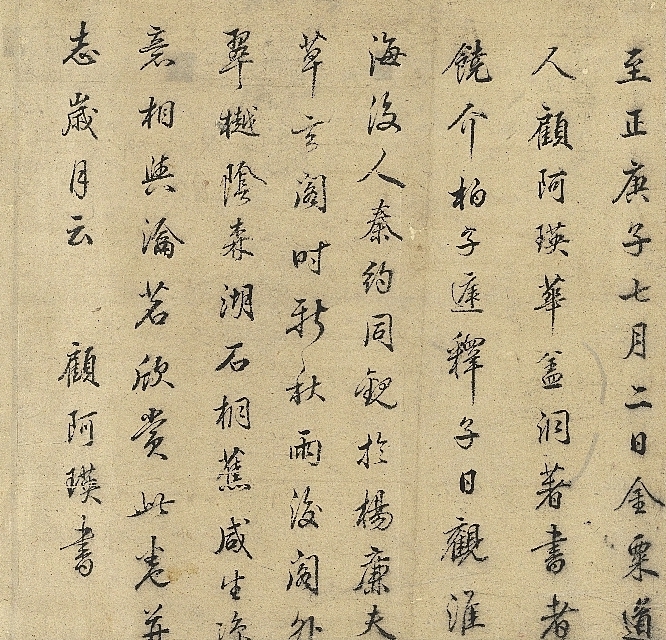 至正庚子七月二日金粟道
人顧阿瑛華盖洞著書者
饒介柏子遲釋子日觀淮
海後人秦約同觀於楊廉夫
草玄閣時新秋雨後閣外
翠樾陰森湖石桐蕉咸生涼
意相與瀹茗欣賞此卷并
志歲月云 顧阿瑛書